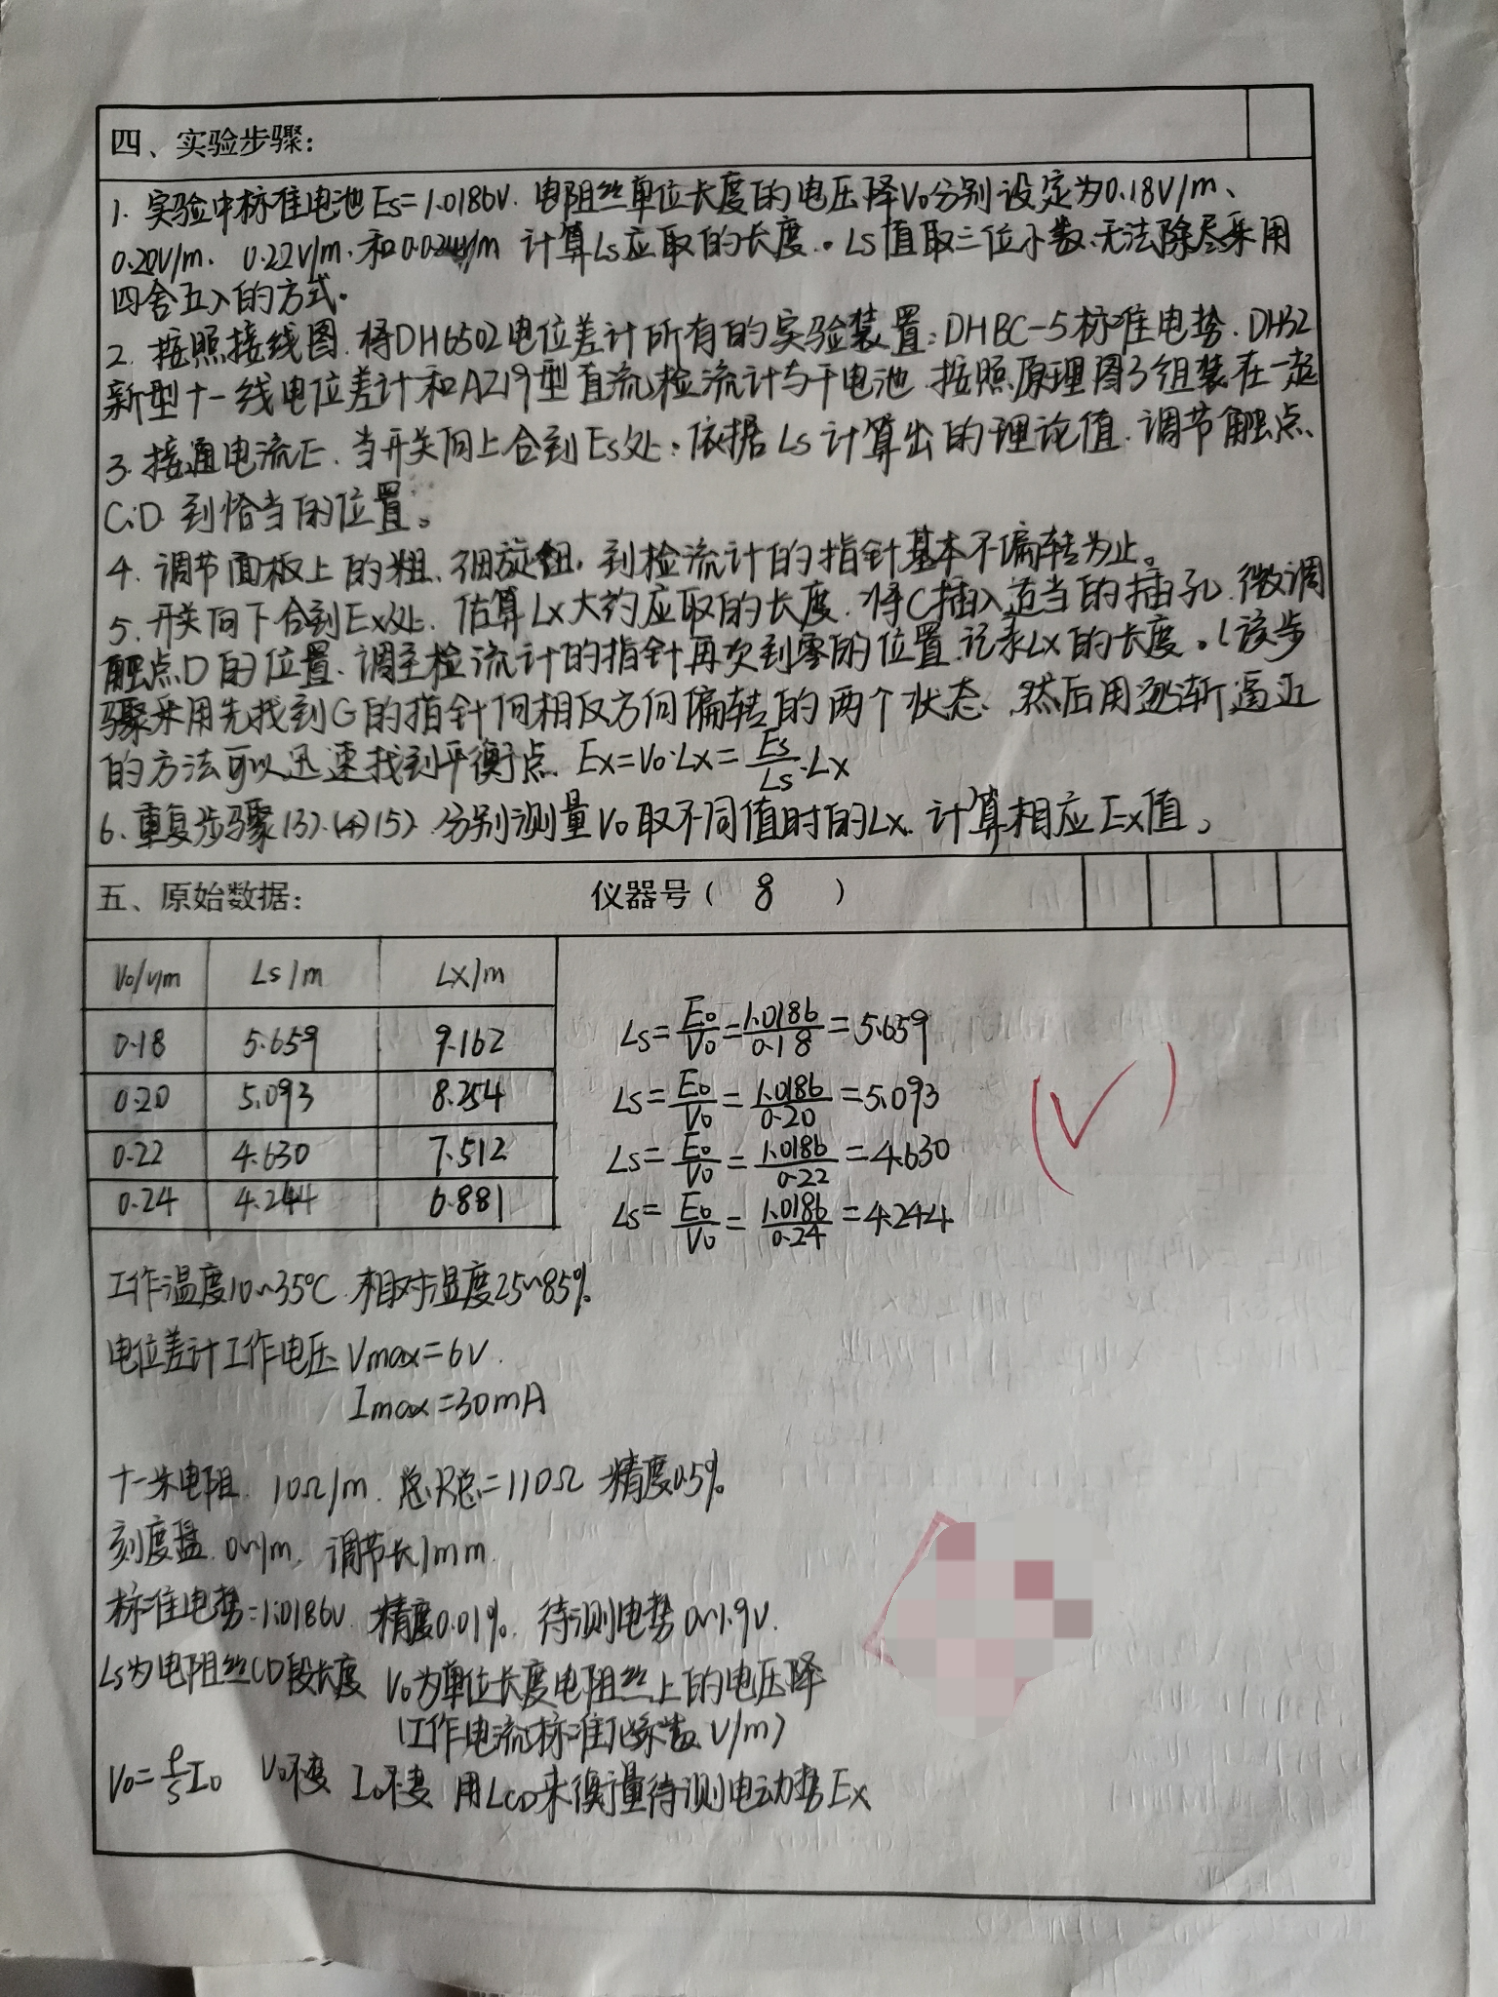 四、实验步骤:
1. 实验中标准电池Es=1.0186V. 电阻丝单位长度的电压降V0分别设定为0.18V/m、
0.20V/m、0.22V/m、和0.024V/m 计算Ls应取的长度。Ls值取三位小数、无法除尽采用
四舍五入的方式。
2. 按照接线图.将DH6502电位差计所有的实验装置:DHBC-5标准电势.DH32
新型十一线电位差计和AZ19型直流检流计与干电池 按照原理图3组装在一起
3. 接通电流E.当开关向上合到Es处.依据Ls计算出的理论值.调节触点、
C.D.到恰当的位置。
4. 调节面板上的粗、细旋钮,到检流计的指针基本不偏转为止。
5. 开关向下合到Ex处.估算Lx大约应取的长度.将C插入适当的插孔.微调
触点D的位置.调至检流计的指针再次到零的位置.记录Lx的长度。(该步
骤采用先找到G的指针向相反方向偏转的两个状态、然后用逐渐逼近
的方法可以迅速找到平衡点. Ex=V0·Lx=Es/Ls·Lx
6. 重复步骤(3).(4)(5).分别测量V0取不同值时的Lx.计算相应Ex值。
五、原始数据: 仪器号( 8 )
V0/V/m Ls/m Lx/m
0.18 5.659 9.162
0.20 5.093 8.254
0.22 4.630 7.512
0.24 4.244 6.881
Ls=E0/V0=1.0186/0.18=5.659
Ls=E0/V0=1.0186/0.20=5.093
Ls=E0/V0=1.0186/0.22=4.630
Ls=E0/V0=1.0186/0.24=4.244
工作温度10~35℃.相对湿度25~85%.
电位差计工作电压Vmax=6V.
Imax=30mA
十一米电阻. 10Ω/m. 总R总=110Ω 精度0.5%.
刻度盘.0~1m, 调节长1mm.
标准电势=1.0186V. 精度0.01%. 待测电势0~1.9V.
Ls为电阻丝CD段长度 V0为单位长度电阻丝上的电压降
(工作电流标准化系数 V/m)
V0=ρ/s I0 V0不变 I0不变 用LCD来衡量待测电动势Ex